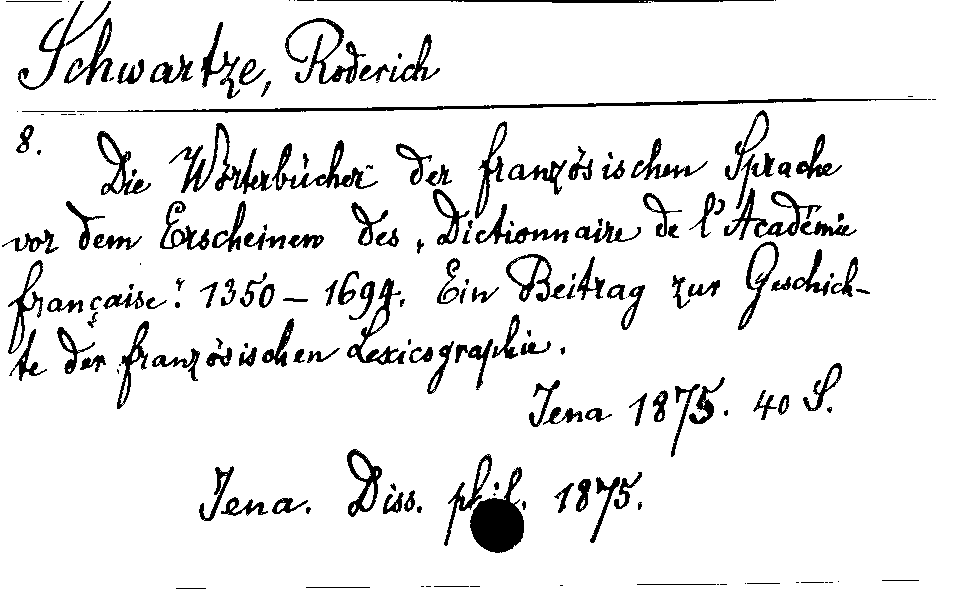 Schwartze, Roderich
8.
Die Wörterbücher der französischen Sprache
vor dem Erscheinen des „Dictionnaire de l'Académie
française". 1350 – 1694. Ein Beitrag zur Geschich-
te der französischen Lexicographie.
Jena 1875. 40 S.
Jena. Diss. phil. 1875.